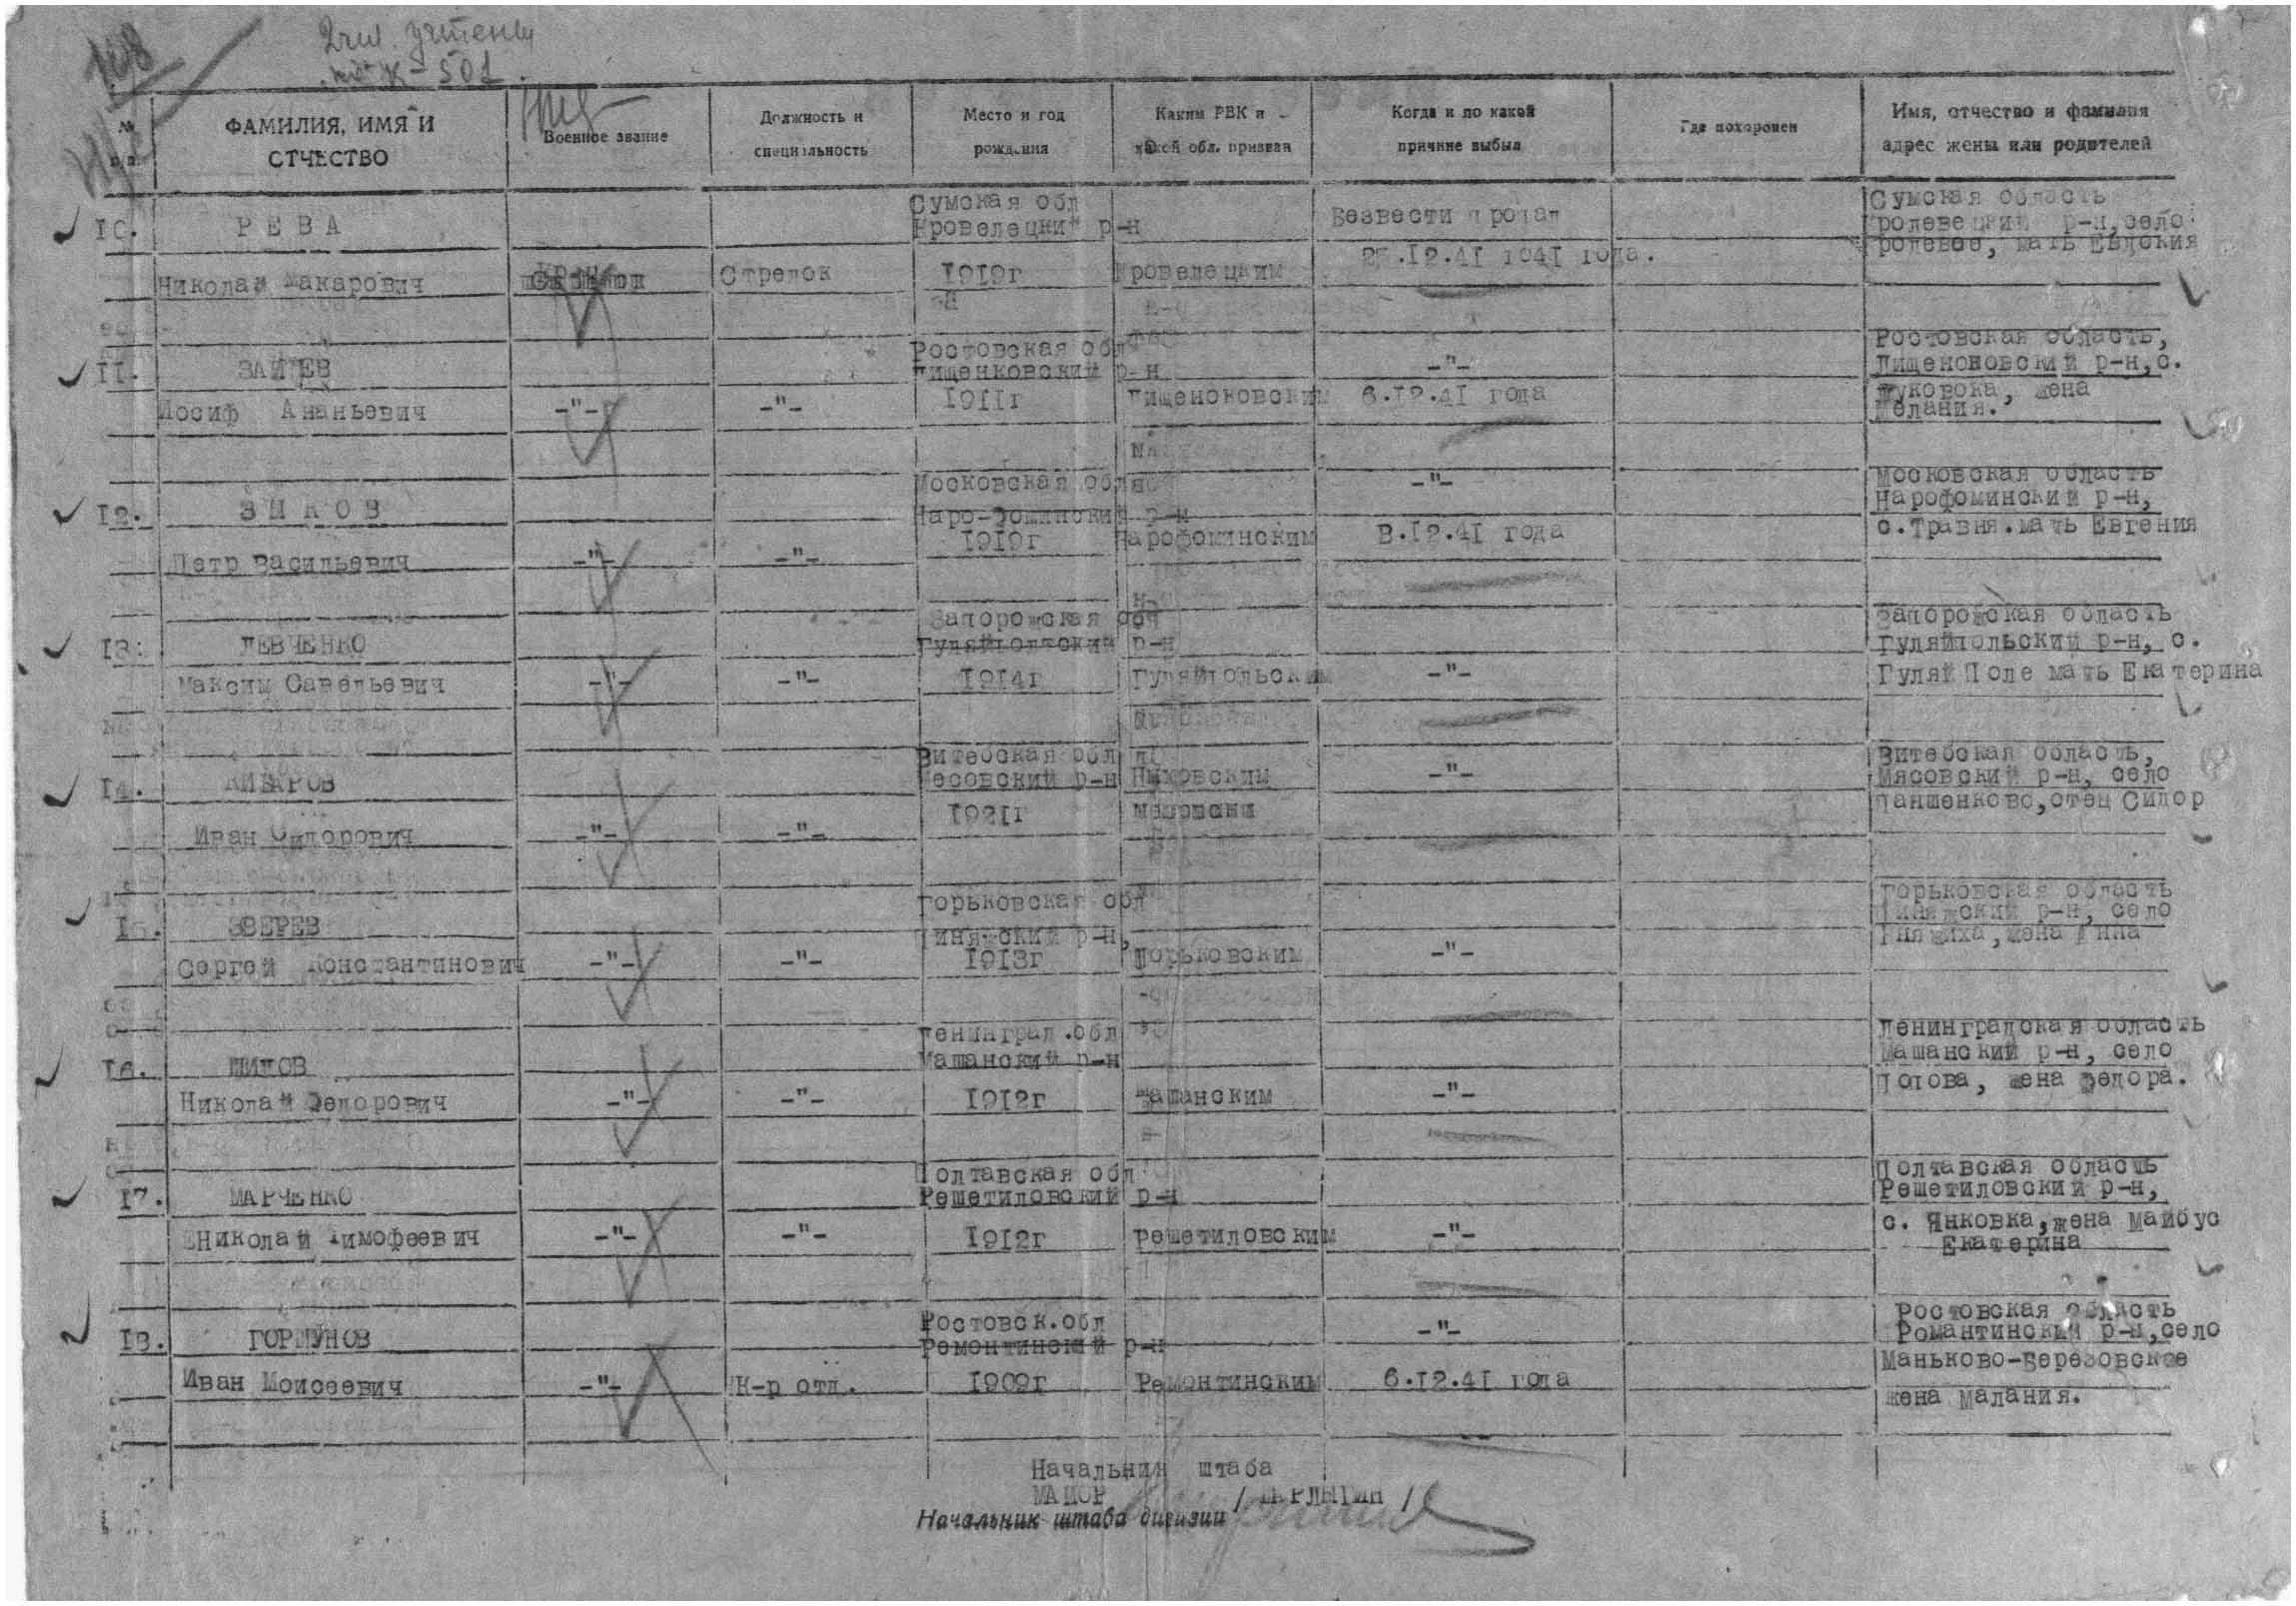 108
2 чел. учтены
К-501.
№ п.п.
ФАМИЛИЯ, ИМЯ И ОТЧЕСТВО
Военное звание
Должность и специальность
Место и год рождения
Каким РВК и какой обл. призван
Когда и по какой причине выбыл
Где похоронен
Имя, отчество и фамилия адрес жены или родителей
10.
РЕВА
Николай Макарович
Стрелок
Сумская обл
Кровелецкий р-н
1919г
Кровелецким
Безвести пропал
.12.41 1941 года.
Сумская область
Кролевецкий р-н, село
ролевое, мать Евдокия
11.
ЗАЙЦЕВ
Иосиф Ананьевич
-"-
-"-
Ростовская обл
Пищенковский р-н
1911г
Пищеноковским
-"-
6.12.41 года
Ростовская область,
Пищеноковский р-н, с.
Жуковока, жена
Мелания.
12.
ЗЫКОВ
Петр Васильевич
-"-
-"-
Московская обл
Наро-Фоминский р-н
1919г
Нарофоминским
-"-
В.12.41 года
Московская область
Нарофоминский р-н,
с.Травня.мать Евгения
13.
ЛЕВЧЕНКО
Максим Савельевич
-"-
-"-
Запорожская обл
Гуляйполтский р-н
1914г
Гуляйпольским
-"-
Запорожская область
Гуляйпольский р-н, с.
Гуляй Поле мать Екатерина
14.
Иван Сидорович
-"-
-"-
Витебская обл
Месовский р-н
1921г
-"-
Витебская область,
Мясовский р-н, село
Паншенково,отец Сидор
15.
ЗВЕРЕВ
Сергей Константинович
-"-
-"-
Горьковская обл
р-н,
1913г
Горьковским
-"-
Горьковская область
р-н, село
Гняжиха, жена Анна
16.
ШИЛОВ
Николай Федорович
-"-
-"-
Ленинград.обл
Машанский р-н
1912г
Машанским
-"-
Ленинградская область
Машанский р-н, село
Попова, жена Федора.
17.
МАРЧЕНКО
Николай Тимофеевич
-"-
-"-
Полтавская обл
Решетиловский р-н
1912г
Решетиловским
-"-
Полтавская область
Решетиловский р-н,
с. Янковка,жена Майбус
Екатерина
18.
ГОРШУНОВ
Иван Моисеевич
-"-
К-р отд.
Ростовск.обл
Ремонтинский р-н
1909г
Ремонтинским
-"-
6.12.41 года
Ростовская область
Романтинский р-н,село
Маньково-Березовское
жена Малания.
Начальник штаба
МАЙОР
Начальник штаба дивизии